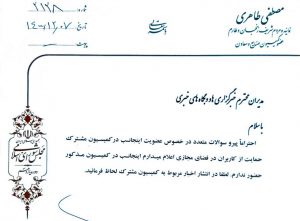 مصطفی طاهری
نماینده مردم شریف زنجان و طارم
عضو کمیسیون صنایع و معادن
شماره: ۲۱۲۸
تاریخ: ۱۴۰۰/۱۲/۰۷
پیوست:
مدیران محترم خبرگزاری‌ها و پایگاه‌های خبری
با سلام
احتراماً پیرو سوالات متعدد در خصوص عضویت اینجانب در کمیسیون مشترک
حمایت از کاربران در فضای مجازی اعلام میدارم اینجانب در کمیسیون مذکور
حضور ندارم. لطفا در انتشار اخبار مربوط به کمیسیون مشترک لحاظ فرمائید.
مجلس شورای اسلامی